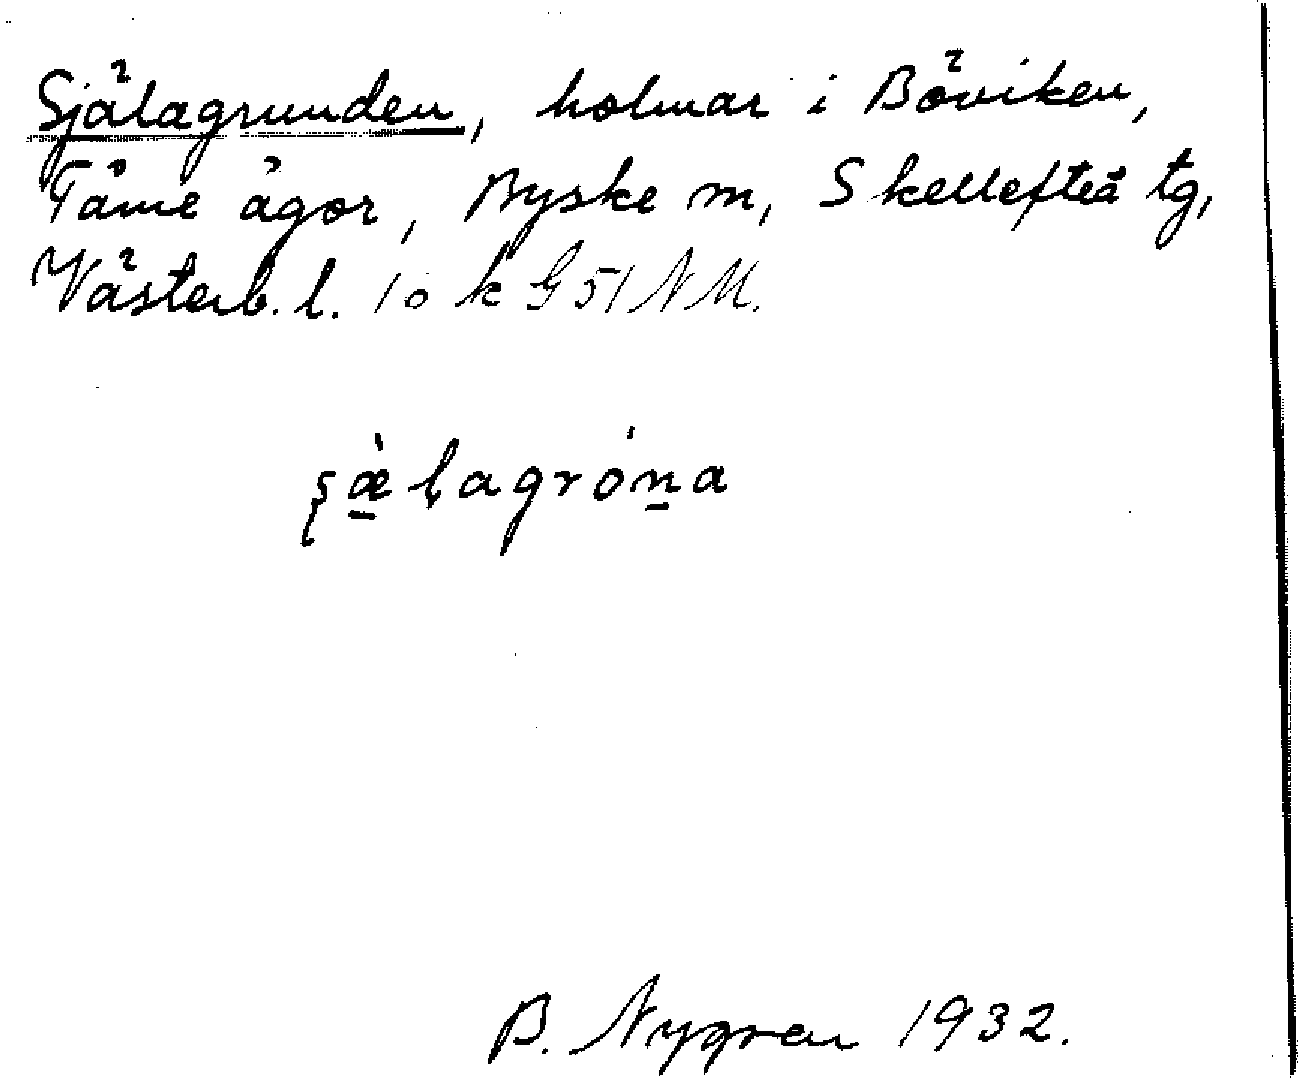 Själagrunden, holmar i Böviken,
Tåme ägor, Byske m, Skellefteå tg,
Västerb. l. 10 k G 51 N M.
ʂæ̀lagróna
B. Nygren 1932.